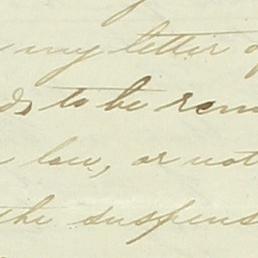 my letter of
ds to be rem
law, or not
the suspens